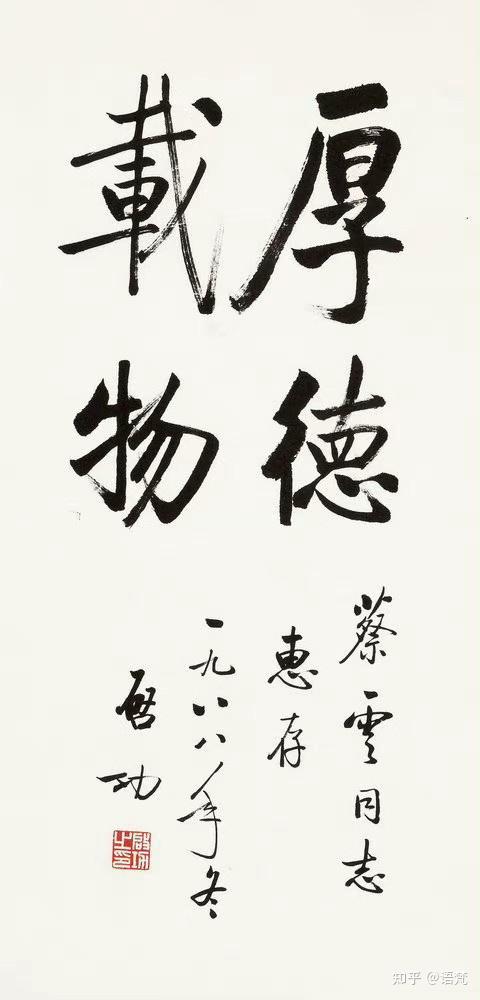 厚德
載物
蔡雲同志
惠存
一九八八年冬
啓功
啟功
之印
知乎 @语梵